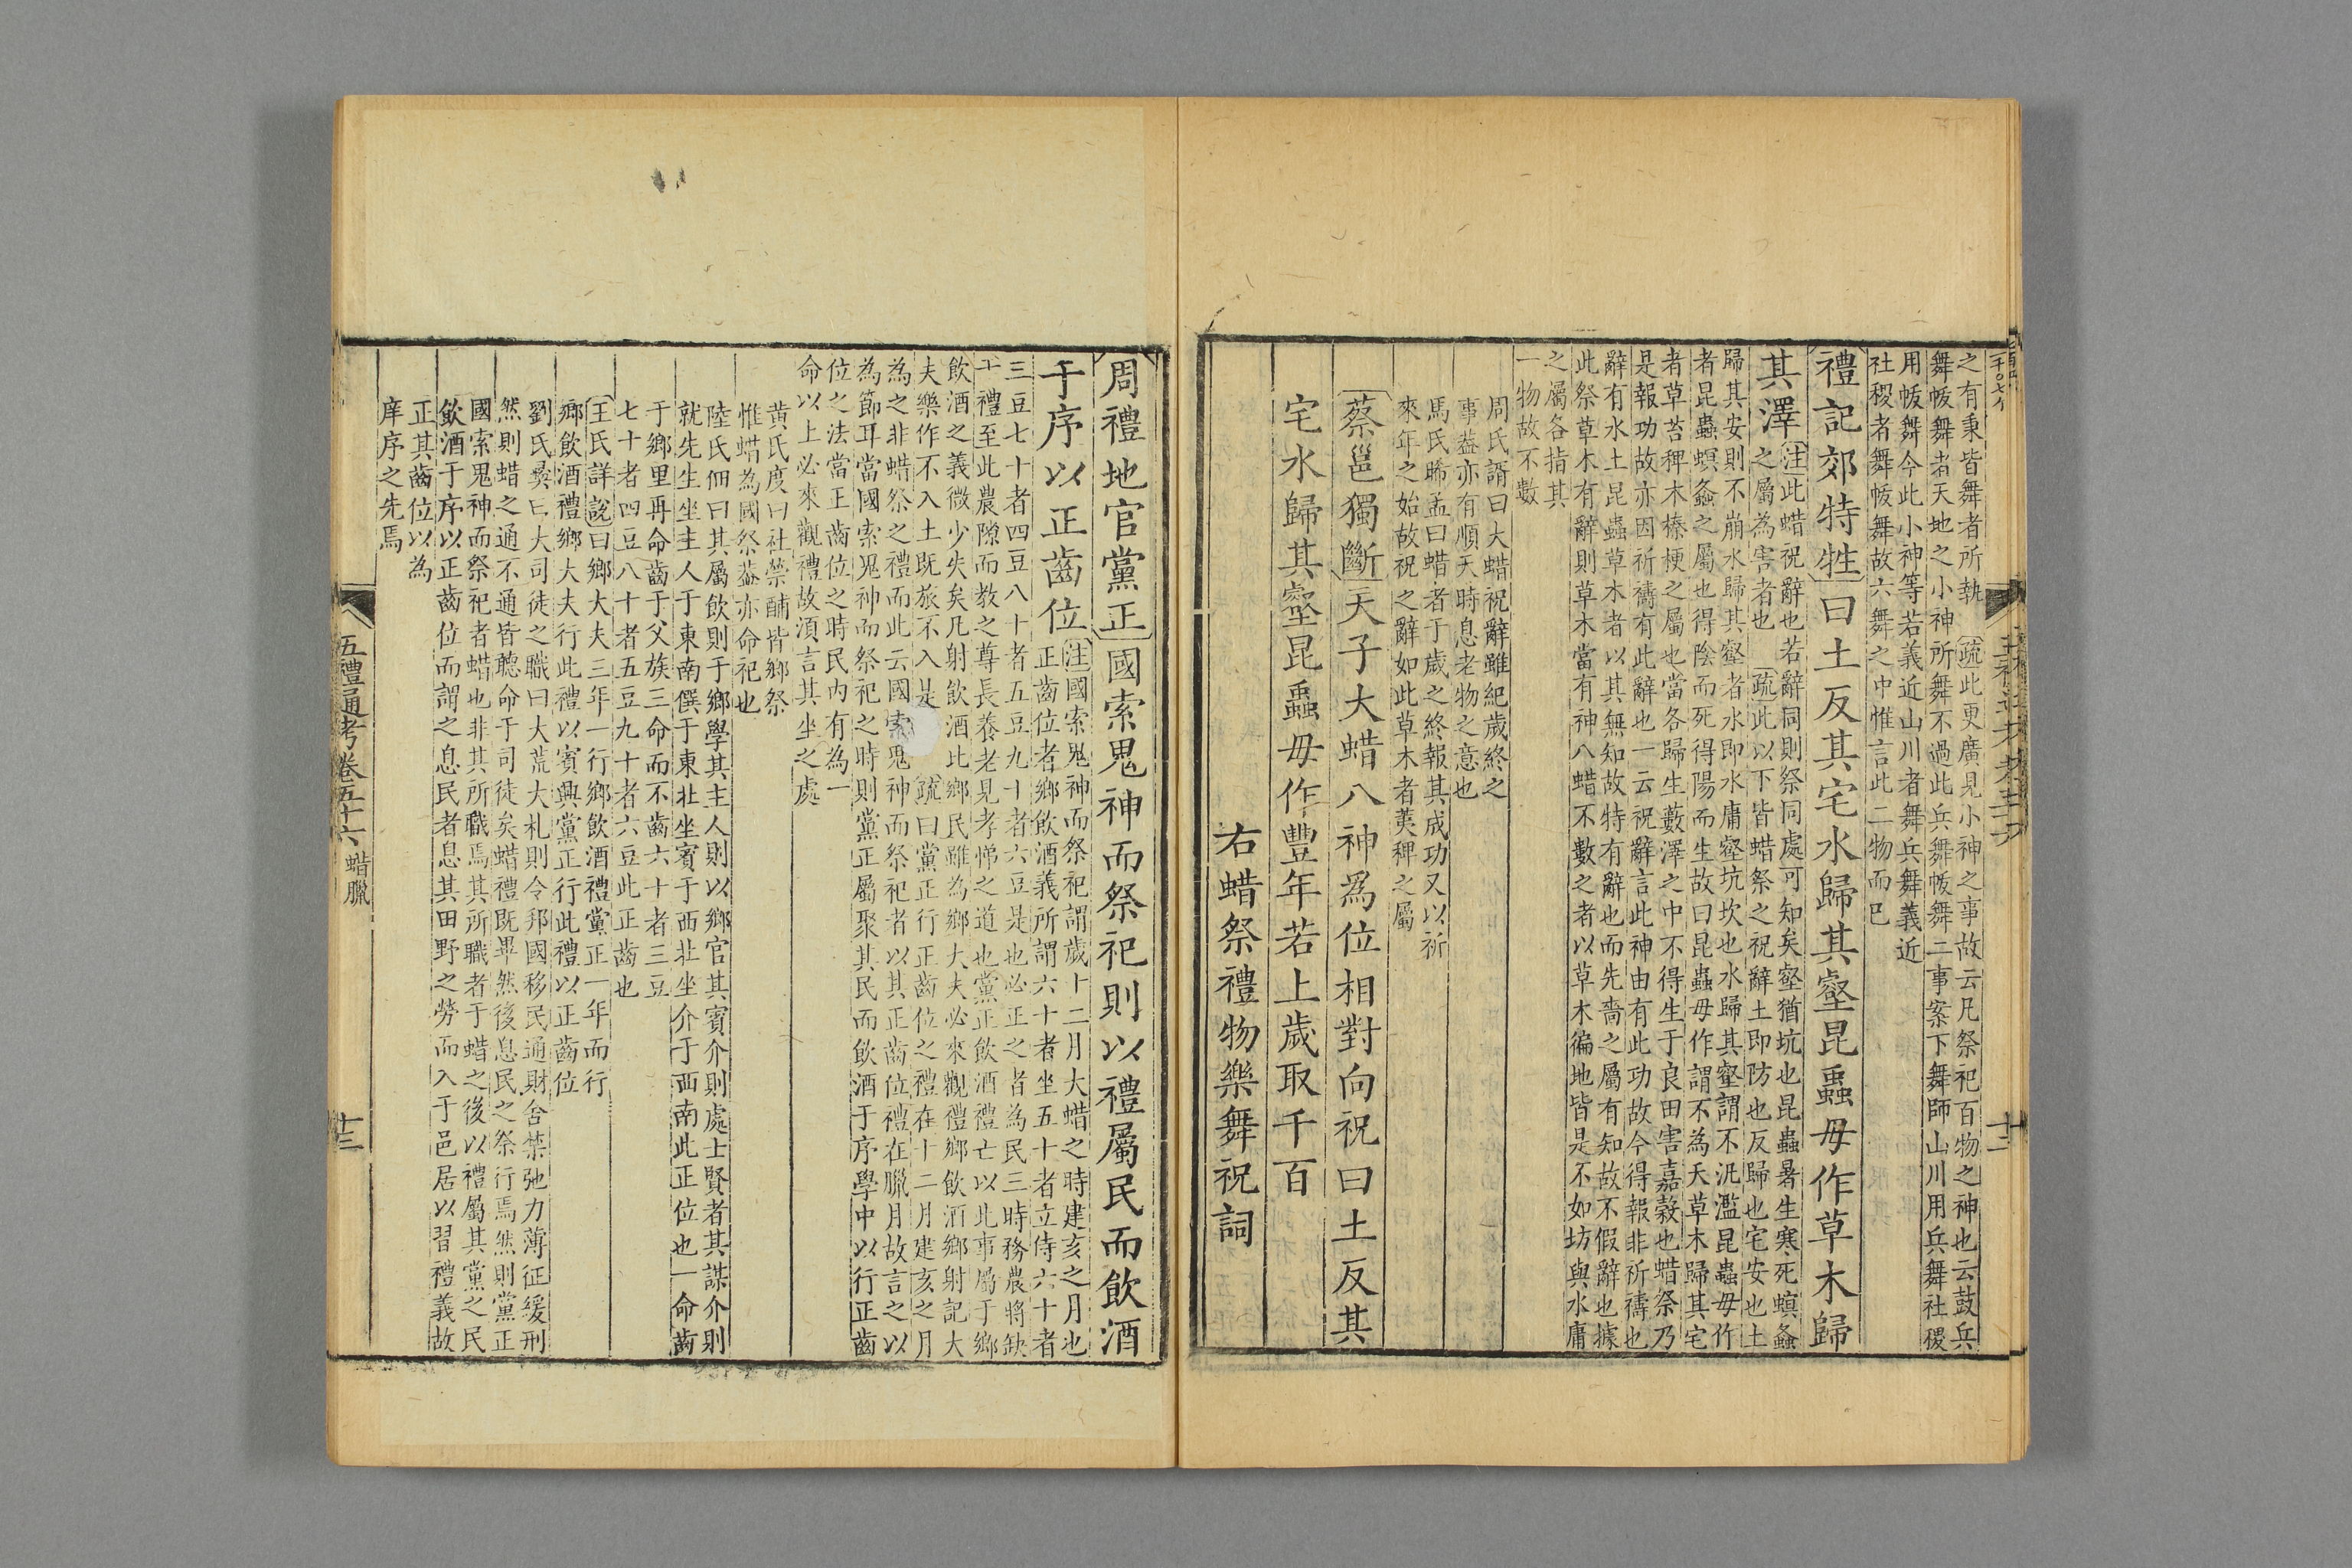 之有秉皆舞者所執 疏此更廣見小神之事故云凡祭祀百物之神也云鼓兵
舞帗舞者天地之小神所舞不過此兵舞帗舞二事案下舞師山川用兵舞社稷
用帗舞今此小神等若義近山川者舞兵舞義近
社稷者舞帗舞故六舞之中惟言此二物而已
禮記郊特牲曰土反其宅水歸其壑昆蟲毋作草木歸
其澤
注此蜡祝辭也若辭同則祭同處可知矣壑猶坑也昆蟲暑生寒死螟螽
之屬為害者也 疏此以下皆蜡祭之祝辭土即防也反歸也宅安也土
歸其安則不崩水歸其壑者水即水庸壑坑坎也水歸其壑謂不汎濫昆蟲毋作
者昆蟲螟螽之屬也得陰而死得陽而生故曰昆蟲毋作謂不為天草木歸其宅
者草苔稗木榛梗之屬也當各歸生藪澤之中不得生于良田害嘉穀也蜡祭乃
是報功故亦因祈禱有此辭也一云祝辭言此神由有此功故今得報非祈禱也
辭有水土昆蟲草木者以其無知故特有辭也而先嗇之屬有知故不假辭也據
此祭草木有辭則草木當有神八蜡不數之者以草木徧地皆是不如坊與水庸
之屬各指其
一物故不數
周氏諝曰大蜡祝辭雖紀歲終之
事葢亦有順天時息老物之意也
馬氏晞孟曰蜡者于歲之終報其成功又以祈
來年之始故祝之辭如此草木者荑稗之屬
蔡邕獨斷天子大蜡八神爲位相對向祝曰土反其
宅水歸其壑昆蟲毋作豐年若上歲取千百
右蜡祭禮物樂舞祝詞
周禮地官黨正國索鬼神而祭祀則以禮屬民而飲酒
于序以正齒位
注國索鬼神而祭祀謂歲十二月大蜡之時建亥之月也
正齒位者鄉飲酒義所謂六十者坐五十者立侍六十者
三豆七十者四豆八十者五豆九十者六豆是也必正之者為民三時務農將缺
于禮至此農隙而教之尊長養老見孝悌之道也黨正飲酒禮亡以此事屬于鄉
飲酒之義微少失矣凡射飲酒此鄉民雖為鄉大夫必來觀禮鄉飲酒鄉射記大
夫樂作不入士既旅不入是 疏曰黨正行正齒位之禮在十二月建亥之月
為之非蜡祭之禮而此云國索鬼神而祭祀者以其正齒位禮在臘月故言之以
為節耳當國索鬼神而祭祀之時則黨正屬聚其民而飲酒于序學中以行正齒
位之法當正齒位之時民內有為一
命以上必來觀禮故湏言其坐之處
黄氏度曰社禜酺皆鄉祭
惟蜡為國祭葢亦命祀也
陸氏佃曰其屬飲則于鄉學其主人則以鄉官其賓介則處士賢者其謀介則
就先生坐主人于東南僎于東北坐賓于西北坐介于西南此正位也一命齒
于鄉里再命齒于父族三命而不齒六十者三豆
七十者四豆八十者五豆九十者六豆此正齒也
王氏詳說曰鄉大夫三年一行鄉飲酒禮黨正一年而行
鄉飲酒禮鄉大夫行此禮以賓興黨正行此禮以正齒位
劉氏彝曰大司徒之職曰大荒大札則令邦國移民通財舍禁弛力薄征緩刑
然則蜡之通不通皆聽命于司徒矣蜡禮既畢然後息民之祭行焉然則黨正
國索鬼神而祭祀者蜡也非其所職焉其所職者于蜡之後以禮屬其黨之民
飲酒于序以正齒位而謂之息民者息其田野之勞而入于邑居以習禮義故
正其齒位以為
庠序之先焉
五禮通考卷五十六 蜡臘
十三